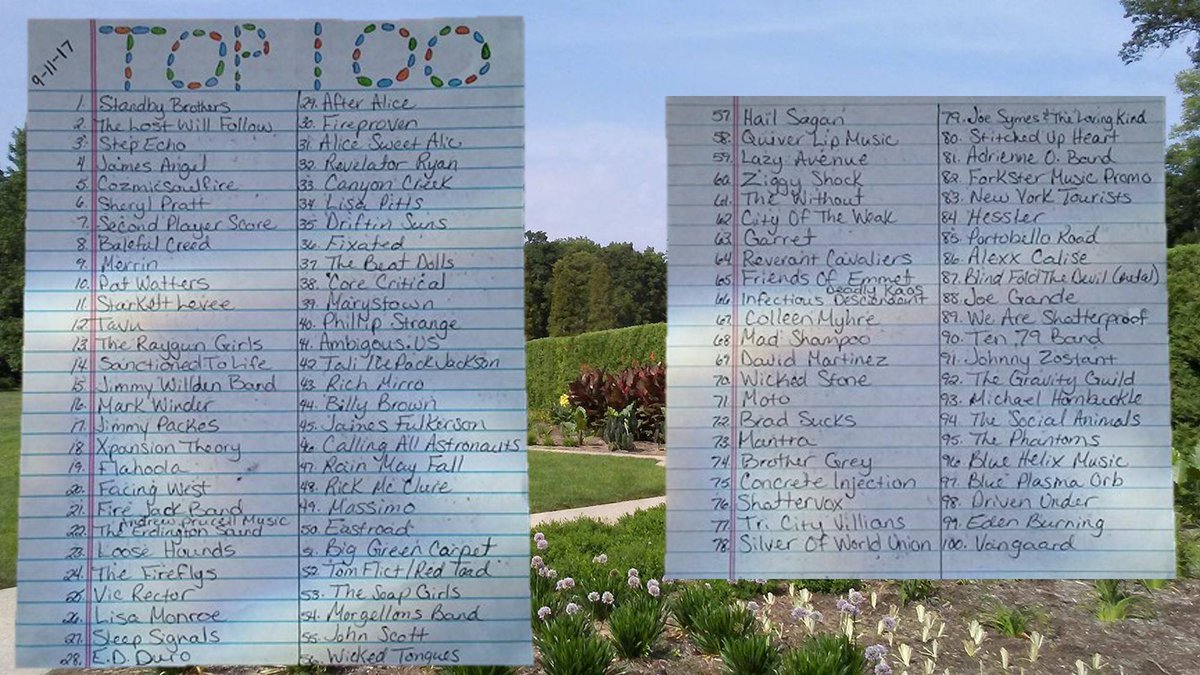 9-11-17
TOP 100
1. Standby Brothers
2. The Lost Will Follow
3. Step Echo
4. James Angel
5. Cozmicsoulfire
6. Sheryl Pratt
7. Second Player Score
8. Baleful Creed
9. Merrin
10. Pat Watters
11. Starkett Levee
12. Tavu
13. The Raygun Girls
14. Sanctioned To Life
15. Jimmy Willden Band
16. Mark Winder
17. Jimmy Packes
18. Xpansion Theory
19. Flahoola
20. Facing West
21. Fire Jack Band
Andrew Prucell Music
22. The Erdington Sound
23. Loose Hounds
24. The Fireflys
25. Vic Rector
26. Lisa Monroe
27. Sleep Signals
28. E.D. Duro
29. After Alice
30. Fireproven
31. Alice Sweet Alic
32. Revelator Ryan
33. Canyon Creek
34. Lisa Pitts
35. Driftin Suns
36. Fixated
37. The Beat Dolls
38. Core Critical
39. Marystown
40. Philip Strange
41. Ambigous.US
42. Tali The Pack Jackson
43. Rich Mirro
44. Billy Brown
45. James Fulkerson
46. Calling All Astronauts
47. Rain May Fall
48. Rick Mc Clure
49. Massimo
50. Eastroad
51. Big Green Carpet
52. Tom Flict/Red Toad
53. The Soap Girls
54. Morgellons Band
55. John Scott
56. Wicked Tongues
57. Hail Sagan
58. Quiver Lip Music
59. Lazy Avenue
60. Ziggy Shock
61. The Without
62. City Of The Weak
63. Garret
64. Reverant Cavaliers
65. Friends Of Emmet
Deadly Kaos
66. Infectious Descontent
67. Colleen Myhre
68. Mad Shampoo
69. David Martinez
70. Wicked Stone
71. Moto
72. Brad Sucks
73. Mantra
74. Brother Grey
75. Concrete Injection
76. Shattervox
77. Tri City Villians
78. Silver Of World Union
79. Joe Symes & The Loving Kind
80. Stitched Up Heart
81. Adrienne O. Band
82. Forkster Music Promo
83. New York Tourists
84. Hessler
85. Portobello Road
86. Alexx Calise
87. Blind Fold The Devil (metal)
88. Joe Grande
89. We Are Shatterproof
90. Ten 79 Band
91. Johnny Zostant
92. The Gravity Guild
93. Michael Hornbuckle
94. The Social Animals
95. The Phantoms
96. Blue Helix Music
97. Blue Plasma Orb
98. Driven Under
99. Eden Burning
100. Vangaard